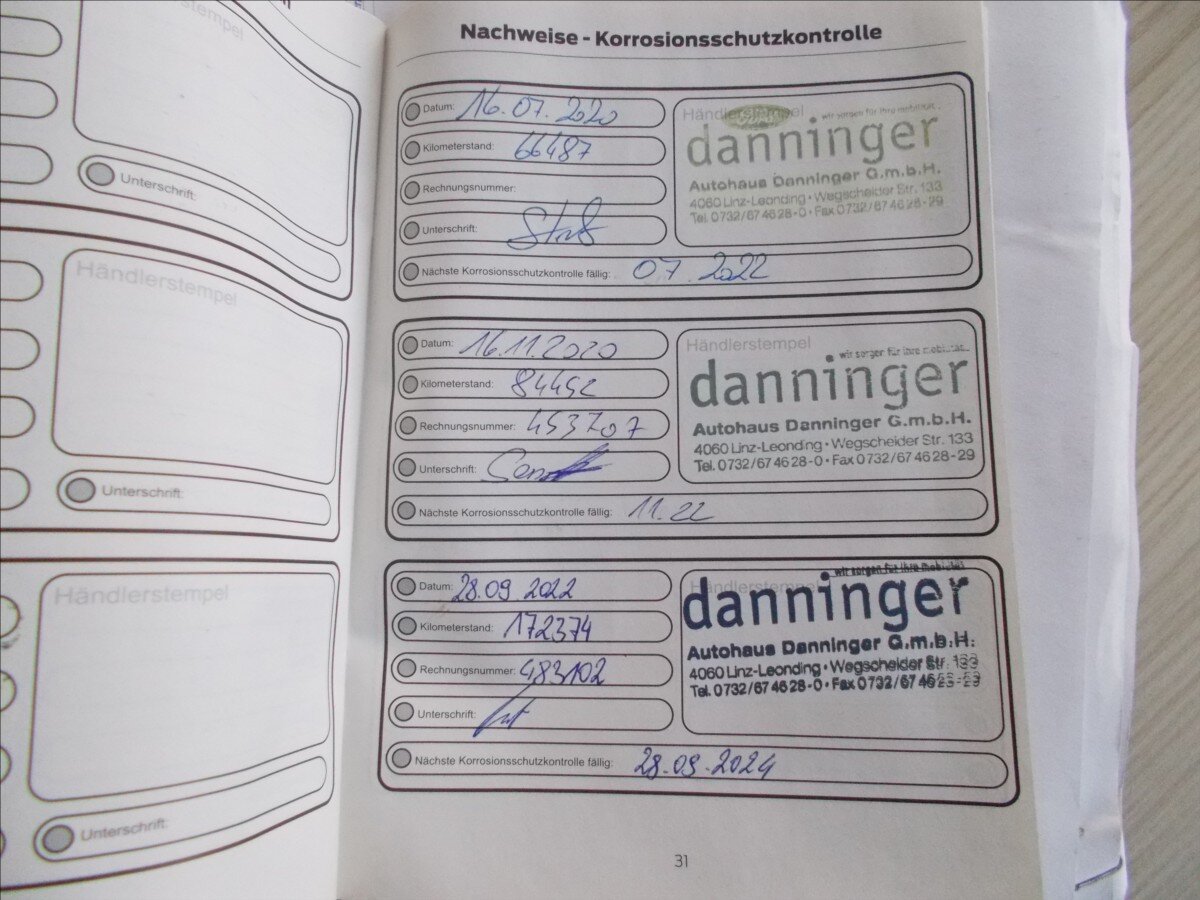 Händlerstempel
Unterschrift:
Händlerstempel
Unterschrift:
Händlerstempel
Unterschrift:
Nachweise - Korrosionsschutzkontrolle
Datum: 16.07.2020
Kilometerstand: 66487
Rechnungsnummer:
Unterschrift:
Nächste Korrosionsschutzkontrolle fällig: 07.2022
Händlerstempel
wir sorgen für ihre mobilität.
danninger
Autohaus Danninger G.m.b.H.
4060 Linz-Leonding • Wegscheider Str. 133
Tel. 0732/67 46 28-0 • Fax 0732/67 46 28-29
Datum: 16.11.2020
Kilometerstand: 84452
Rechnungsnummer: 453707
Unterschrift:
Nächste Korrosionsschutzkontrolle fällig: 11.22
Händlerstempel
wir sorgen für ihre mobilität.
danninger
Autohaus Danninger G.m.b.H.
4060 Linz-Leonding • Wegscheider Str. 133
Tel. 0732/67 46 28-0 • Fax 0732/67 46 28-29
Datum: 28.09.2022
Kilometerstand: 172374
Rechnungsnummer: 483102
Unterschrift:
Nächste Korrosionsschutzkontrolle fällig: 28.09.2024
Händlerstempel
wir sorgen für ihre mobilität
danninger
Autohaus Danninger G.m.b.H.
4060 Linz-Leonding • Wegscheider Str. 133
Tel. 0732/67 46 28-0 • Fax 0732/67 46 28-29
31